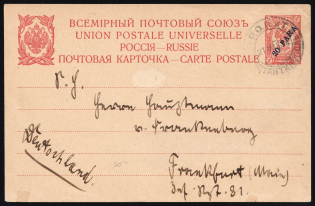 ВСЕМІРНЫЙ ПОЧТОВЫЙ СОЮЗЪ
UNION POSTALE UNIVERSELLE
РОССІЯ — RUSSIE
ПОЧТОВАЯ КАРТОЧКА — CARTE POSTALE
20 PARA
S. H.
Herrn Hauptmann
v. Frankenberg
Deutschland.
Frankfurt (Main)
Inf. Rgt. 81.